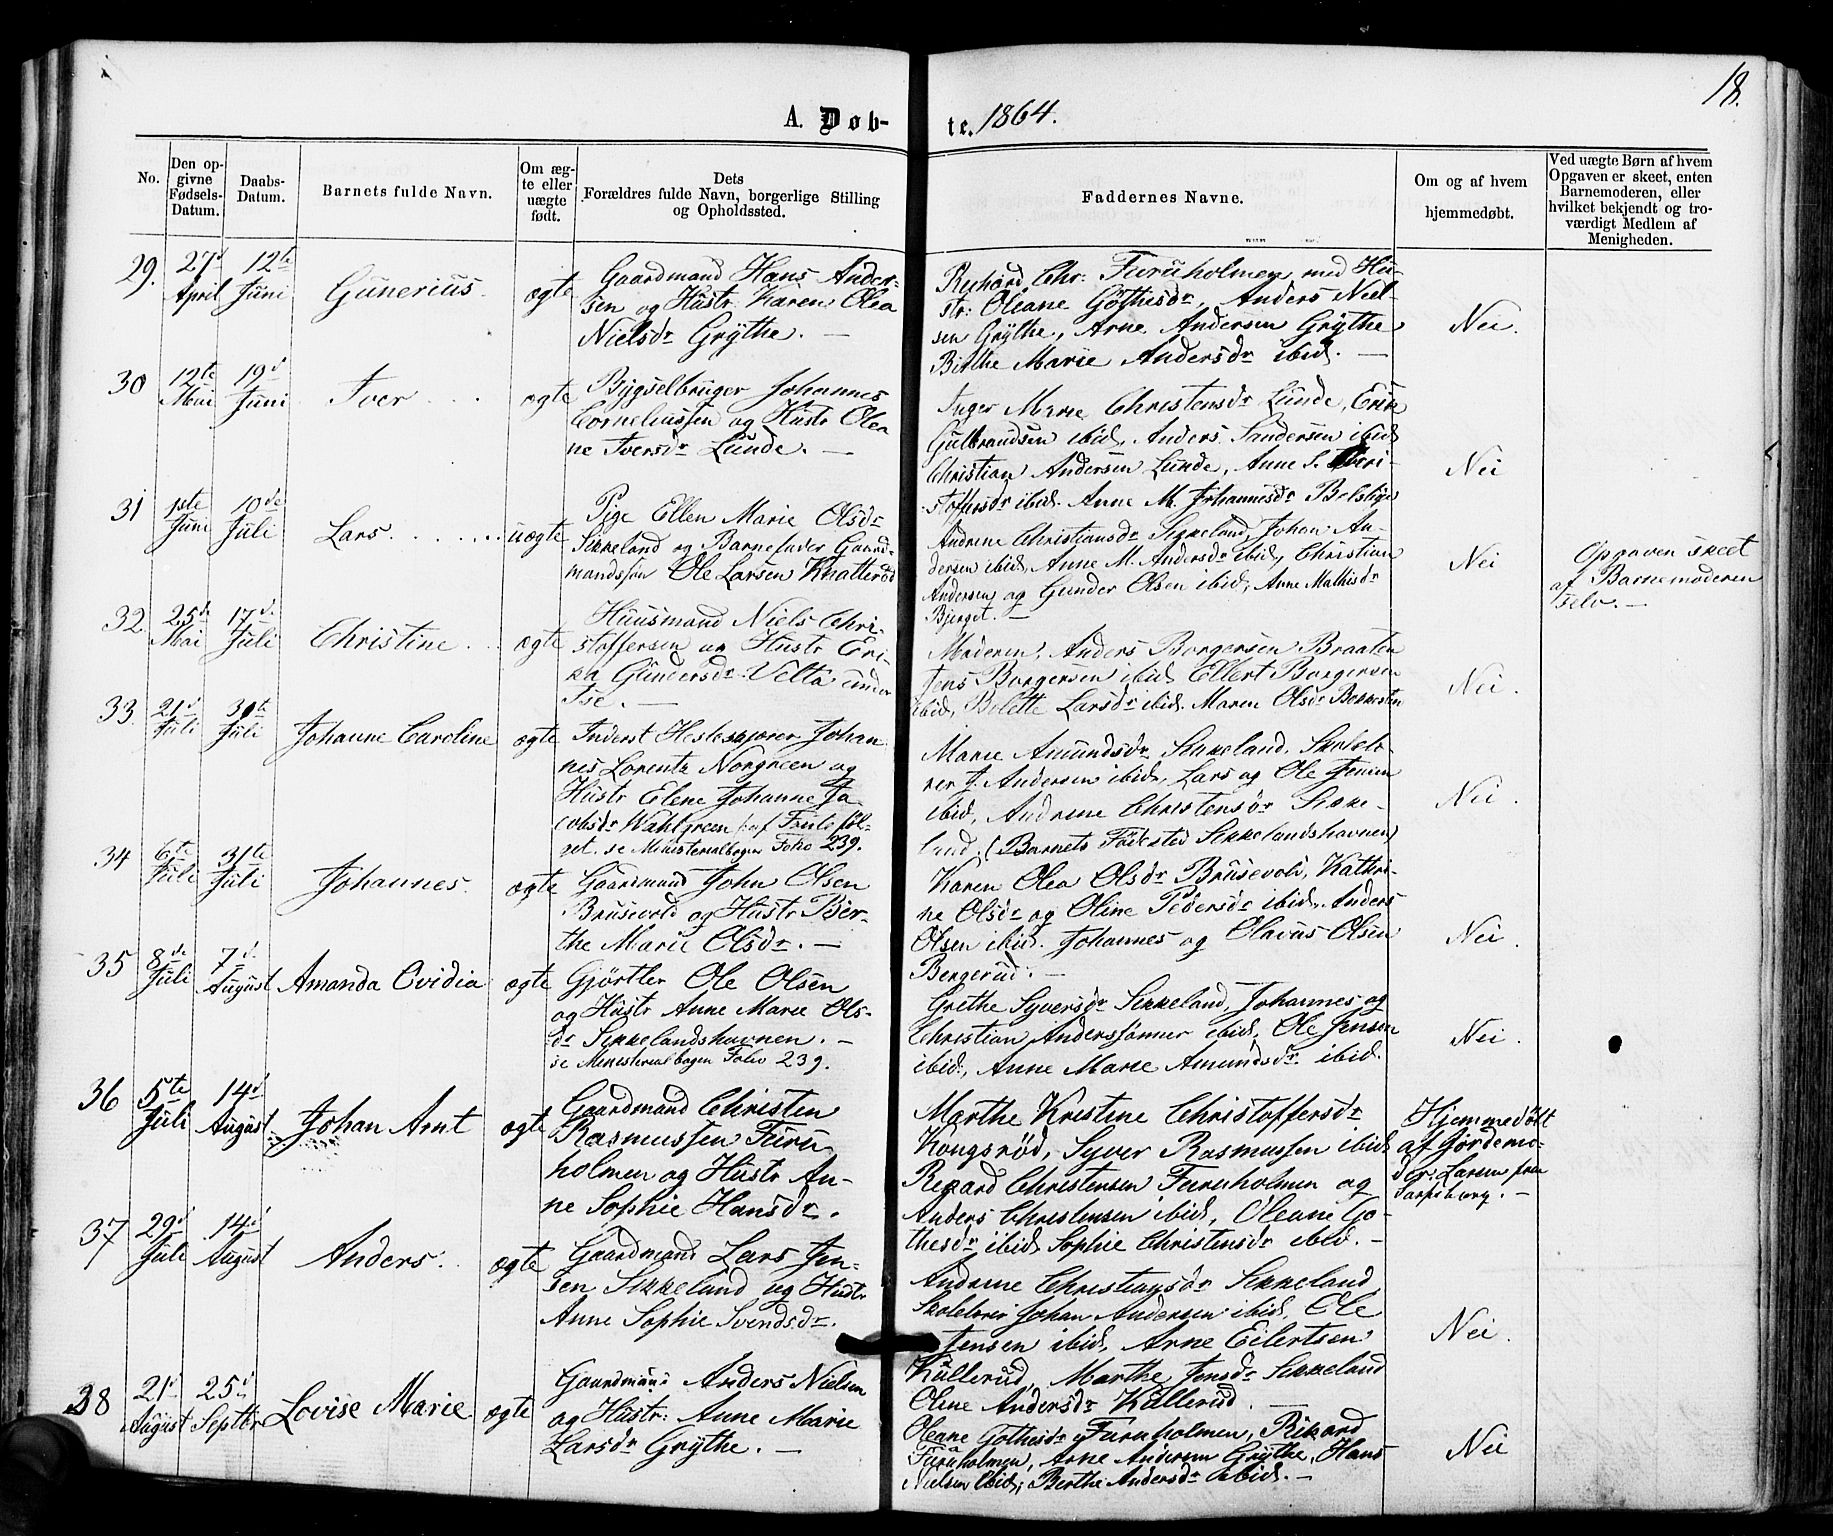 18.
A. Døb- te. 1864.
No.
Den op-
givne
Fødsels-
Datum.
Daabs-
Datum.
Barnets fulde Navn.
Om æg-
te eller
uægte
født.
Dets
Forældres fulde Navn, borgerlige Stilling
og Opholdssted.
Faddernes Navne.
Om og af hvem
hjemmedøbt.
Ved uægte Børn af hvem
Opgaven er skeet, enten
Barnemoderen, eller
hvilket bekjendt og tro-
værdigt Medlem af
Menigheden.
29.
27d
April
12te
Juni
Gunerius
ægte
Gaardmand Hans Ander-
sen og Hustr Karen Olea
Nielsdr Grythe. —
Richard Chr: Furuholmen med Hu-
str: Oleane Göthesdr, Anders Niel-
sen Grythe, Arne Andersen Grythe
Birthe Marie Andersdr ibid. —
Nei.
30
12te
Mai
19d
Juni
Iver
ægte
Bygselbruger Johannes
Corneliussen og Hustr Olea
ne Iversdr Lunde. —
Inger Marie Christensdr Lunde, Erik
Gulbrandsen ibid, Anders Andersen ibid
Christian Andersen Lunde, Anne S. Chri-
stoffersdr ibid. Anne M. Johannesdr
Nei
31
1ste
Juni
10de
Juli
Lars
uægte
Pige Ellen Marie Olsdr
Sikkeland og Barnefader Gaard-
mandssøn Ole Larsen Knatterød
Andrine Christiansdr Sikkeland, Johan An-
dersen ibid, Anne M. Andersdr ibid, Christian
Andersen og Gunder Olsen ibid, Anne Mathisdr
Bjerget. —
Nei
Opgaven skeet
af Barnemoderen
selv. —
32.
25de
Mai
17de
Juli
Christine
ægte
Huusmand Niels Chri-
stoffersen og Hustr Eri-
ka Gundersdr Velta under
Tse. —
Moderen, Anders Borgersen Braaten
Jens Borgersen ibid Ellert Borgersen
ibid, Belette Larsdr ibid. Maren Olsdr
Nei.
33.
21d
Juli
30te
Juli
Johanne Caroline
ægte
Inderst Johan
nes Lorentz Norgreen og
Hustr Elene Johanne Ja
cobsdr Wahlgreen
se Ministerialbogen Folio 239.
Marie Amundsdr Sikkeland, Skolelæ-
rer J. Andersen ibid, Lars og Ole Jensen
ibid, Andrine Christensdr Sikke-
land. (Barnets Födested Sikkelandshavnen)
Nei.
34
6te
Juli
31te
Juli
Johannes.
ægte
Gaardmand John Olsen
Brusevold og Hustr Ber-
the Marie Olsdr. —
Karen Olea Olsdr Brusevold, Kathri-
ne Olsdr og Oline Pedersdr ibid. Anders
Olsen ibid. Johannes og Olavus Olsen
Bergerud. —
Nei.
35
8de
Juli
7d
August
Amanda Ovidia
ægte
Gjørtler Ole Olsen
og Hustr Anne Marie Ols-
dr Sikkelandshavnen. —
se Ministerialbogen Folio 239.
Grethe Syversdr Sikkeland, Johannes og
Christian Anderssønner ibid, Ole Jensen
ibid, Anne Marie Amundsdr ibid.
Nei.
36
5te
Juli
14d
August
Johan Arnt
ægte
Gaardmand Christen
Rasmussen Furu
holmen og Hustr An-
ne Sophie Hansdr.
Marthe Kristine Christoffersdr
Kongsrød, Syver Rasmussen ibid
Regard Christensen Furuholmen og
Anders Christensen ibid, Oleane Gø-
thesdr ibid Sophie Christensdr ibid. —
Hjemmedöbt
af Jordemo-
der: Larsen fra
Sarpsborg. —
37
29d
Juli
14d
August
Anders.
ægte
Gaardmand Lars Jen-
sen Sikkeland og Hustr
Anne Sophie Svendsdr.
Andrine Christiansdr Sikkeland
Skolelærer Johan Andersen ibid, Ole
Jensen ibid, Arne Eilertsen
Kullerud, Marthe Jensdr Sikkeland
Oline Andersdr Kullerud. —
Nei.
38
21d
August
25d
Septbr
Lovise Marie
ægte
Gaardmand Anders Nielsen
og Hustr: Anne Marie
Larsdr Grythe. —
Oleane Gothesdr Furuholmen, Rikard
Furuholmen, Arne Andersen Grythe, Hans
Nielsen ibid; Berthe Andersdr ibid. —
Nei